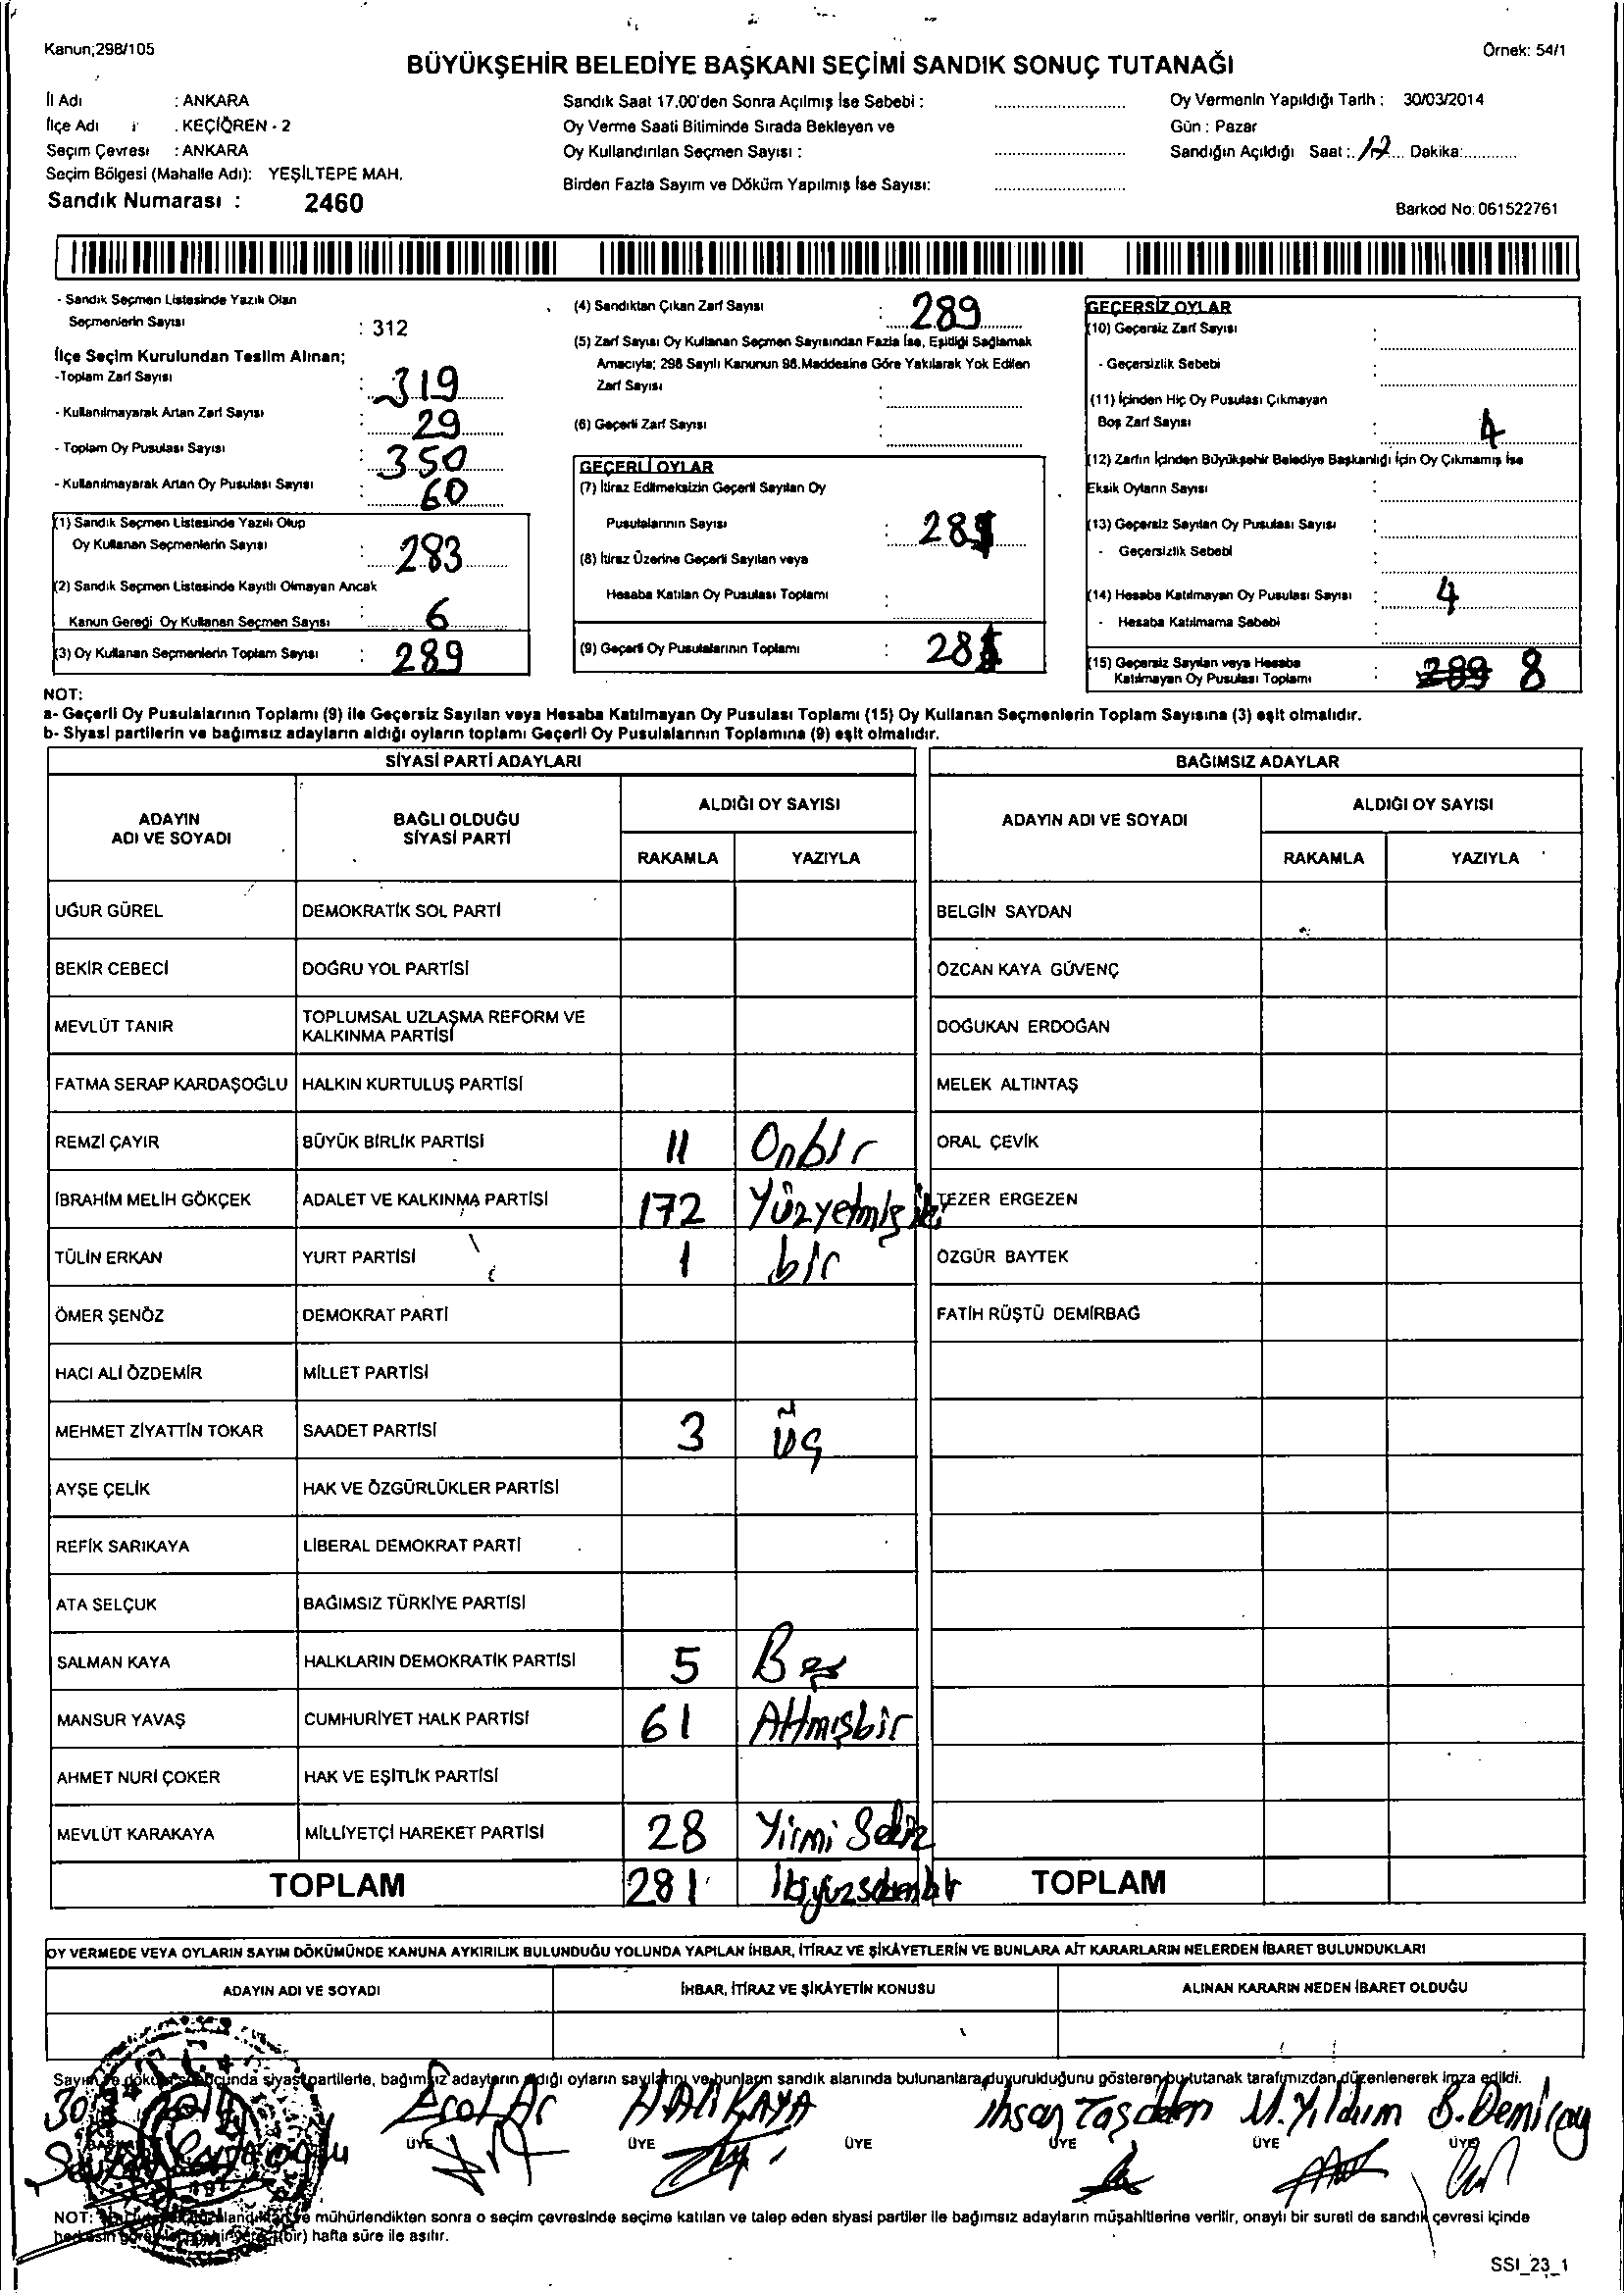 Kanun;298/105
Örnek: 54/1
BÜYÜKŞEHİR BELEDİYE BAŞKANI SEÇİMİ SANDIK SONUÇ TUTANAĞI
İl Adı : ANKARA
İlçe Adı : KEÇİÖREN - 2
Seçim Çevresi : ANKARA
Seçim Bölgesi (Mahalle Adı): YEŞİLTEPE MAH.
Sandık Numarası : 2460
Sandık Saat 17.00'den Sonra Açılmış İse Sebebi :
Oy Verme Saati Bitiminde Sırada Bekleyen ve
Oy Kullandırılan Seçmen Sayısı :
Birden Fazla Sayım ve Döküm Yapılmış İse Sayısı:
Oy Vermenin Yapıldığı Tarih : 30/03/2014
Gün : Pazar
Sandığın Açıldığı Saat : 17 Dakika:
Barkod No: 061522761
- Sandık Seçmen Listesinde Yazılı Olan
Seçmenlerin Sayısı : 312
İlçe Seçim Kurulundan Teslim Alınan;
-Toplam Zarf Sayısı : 319
- Kullanılmayarak Artan Zarf Sayısı : 29
- Toplam Oy Pusulası Sayısı : 350
- Kullanılmayarak Artan Oy Pusulası Sayısı : 60
(1) Sandık Seçmen Listesinde Yazılı Olup
Oy Kullanan Seçmenlerin Sayısı : 283
(2) Sandık Seçmen Listesinde Kayıtlı Olmayan Ancak
Kanun Gereği Oy Kullanan Seçmen Sayısı : 6
(3) Oy Kullanan Seçmenlerin Toplam Sayısı : 289
(4) Sandıktan Çıkan Zarf Sayısı : 289
(5) Zarf Sayısı Oy Kullanan Seçmen Sayısından Fazla İse, Eşitliği Sağlamak
Amacıyla; 298 Sayılı Kanunun 98.Maddesine Göre Yakılarak Yok Edilen
Zarf Sayısı :
(6) Geçerli Zarf Sayısı :
GEÇERLİ OYLAR
(7) İtiraz Edilmeksizin Geçerli Sayılan Oy
Pusulalarının Sayısı : 281
(8) İtiraz Üzerine Geçerli Sayılan veya
Hesaba Katılan Oy Pusulası Toplamı :
(9) Geçerli Oy Pusulalarının Toplamı : 281
GEÇERSİZ OYLAR
(10) Geçersiz Zarf Sayısı :
- Geçersizlik Sebebi :
(11) İçinden Hiç Oy Pusulası Çıkmayan
Boş Zarf Sayısı : 4
(12) Zarfın İçinden Büyükşehir Belediye Başkanlığı İçin Oy Çıkmamış İse
Eksik Oyların Sayısı :
(13) Geçersiz Sayılan Oy Pusulası Sayısı :
- Geçersizlik Sebebi :
(14) Hesaba Katılmayan Oy Pusulası Sayısı : 4
- Hesaba Katılmama Sebebi :
(15) Geçersiz Sayılan veya Hesaba
Katılmayan Oy Pusulası Toplamı : 289 8
NOT:
a- Geçerli Oy Pusulalarının Toplamı (9) ile Geçersiz Sayılan veya Hesaba Katılmayan Oy Pusulası Toplamı (15) Oy Kullanan Seçmenlerin Toplam Sayısına (3) eşit olmalıdır.
b- Siyasi partilerin ve bağımsız adayların aldığı oyların toplamı Geçerli Oy Pusulalarının Toplamına (9) eşit olmalıdır.
SİYASİ PARTİ ADAYLARI
BAĞIMSIZ ADAYLAR
ADAYIN ADI VE SOYADI
BAĞLI OLDUĞU SİYASİ PARTİ
ALDIĞI OY SAYISI
RAKAMLA YAZIYLA
ADAYIN ADI VE SOYADI
ALDIĞI OY SAYISI
RAKAMLA YAZIYLA
UĞUR GÜREL DEMOKRATİK SOL PARTİ BELGİN SAYDAN
BEKİR CEBECİ DOĞRU YOL PARTİSİ ÖZCAN KAYA GÜVENÇ
MEVLÜT TANIR TOPLUMSAL UZLAŞMA REFORM VE KALKINMA PARTİSİ DOĞUKAN ERDOĞAN
FATMA SERAP KARDAŞOĞLU HALKIN KURTULUŞ PARTİSİ MELEK ALTINTAŞ
REMZİ ÇAYIR BÜYÜK BİRLİK PARTİSİ 11 Onbir ORAL ÇEVİK
İBRAHİM MELİH GÖKÇEK ADALET VE KALKINMA PARTİSİ 172 Yüzyetmiş iki TEZER ERGEZEN
TÜLİN ERKAN YURT PARTİSİ 1 bir ÖZGÜR BAYTEK
ÖMER ŞENÖZ DEMOKRAT PARTİ FATİH RÜŞTÜ DEMİRBAĞ
HACI ALİ ÖZDEMİR MİLLET PARTİSİ
MEHMET ZİYATTİN TOKAR SAADET PARTİSİ 3 üç
AYŞE ÇELİK HAK VE ÖZGÜRLÜKLER PARTİSİ
REFİK SARIKAYA LİBERAL DEMOKRAT PARTİ
ATA SELÇUK BAĞIMSIZ TÜRKİYE PARTİSİ
SALMAN KAYA HALKLARIN DEMOKRATİK PARTİSİ 5 Beş
MANSUR YAVAŞ CUMHURİYET HALK PARTİSİ 61 Altmışbir
AHMET NURİ ÇOKER HAK VE EŞİTLİK PARTİSİ
MEVLÜT KARAKAYA MİLLİYETÇİ HAREKET PARTİSİ 28 Yirmi Sekiz
TOPLAM 281 İkiyüzseksenbir TOPLAM
OY VERMEDE VEYA OYLARIN SAYIM DÖKÜMÜNDE KANUNA AYKIRILIK BULUNDUĞU YOLUNDA YAPILAN İHBAR, İTİRAZ VE ŞİKÂYETLERİN VE BUNLARA AİT KARARLARIN NELERDEN İBARET BULUNDUKLARI
ADAYIN ADI VE SOYADI İHBAR, İTİRAZ VE ŞİKÂYETİN KONUSU ALINAN KARARIN NEDEN İBARET OLDUĞU
siyasi partilerle, bağımsız adayların aldığı oyların sayılarını ve bunların sandık alanında bulunanlara duyurulduğunu gösteren bu tutanak tarafımızdan düzenlenerek imza edildi.
Erol Ar HAKKAYA İhsan Taşdelen M.Yıldırım B.Demiray
ÜYE ÜYE ÜYE ÜYE ÜYE ÜYE
NOT: mühürlendikten sonra o seçim çevresinde seçime katılan ve talep eden siyasi partiler ile bağımsız adayların müşahitlerine verilir, onaylı bir sureti de sandık çevresi içinde
(bir) hafta süre ile asılır.
SSI_23_1